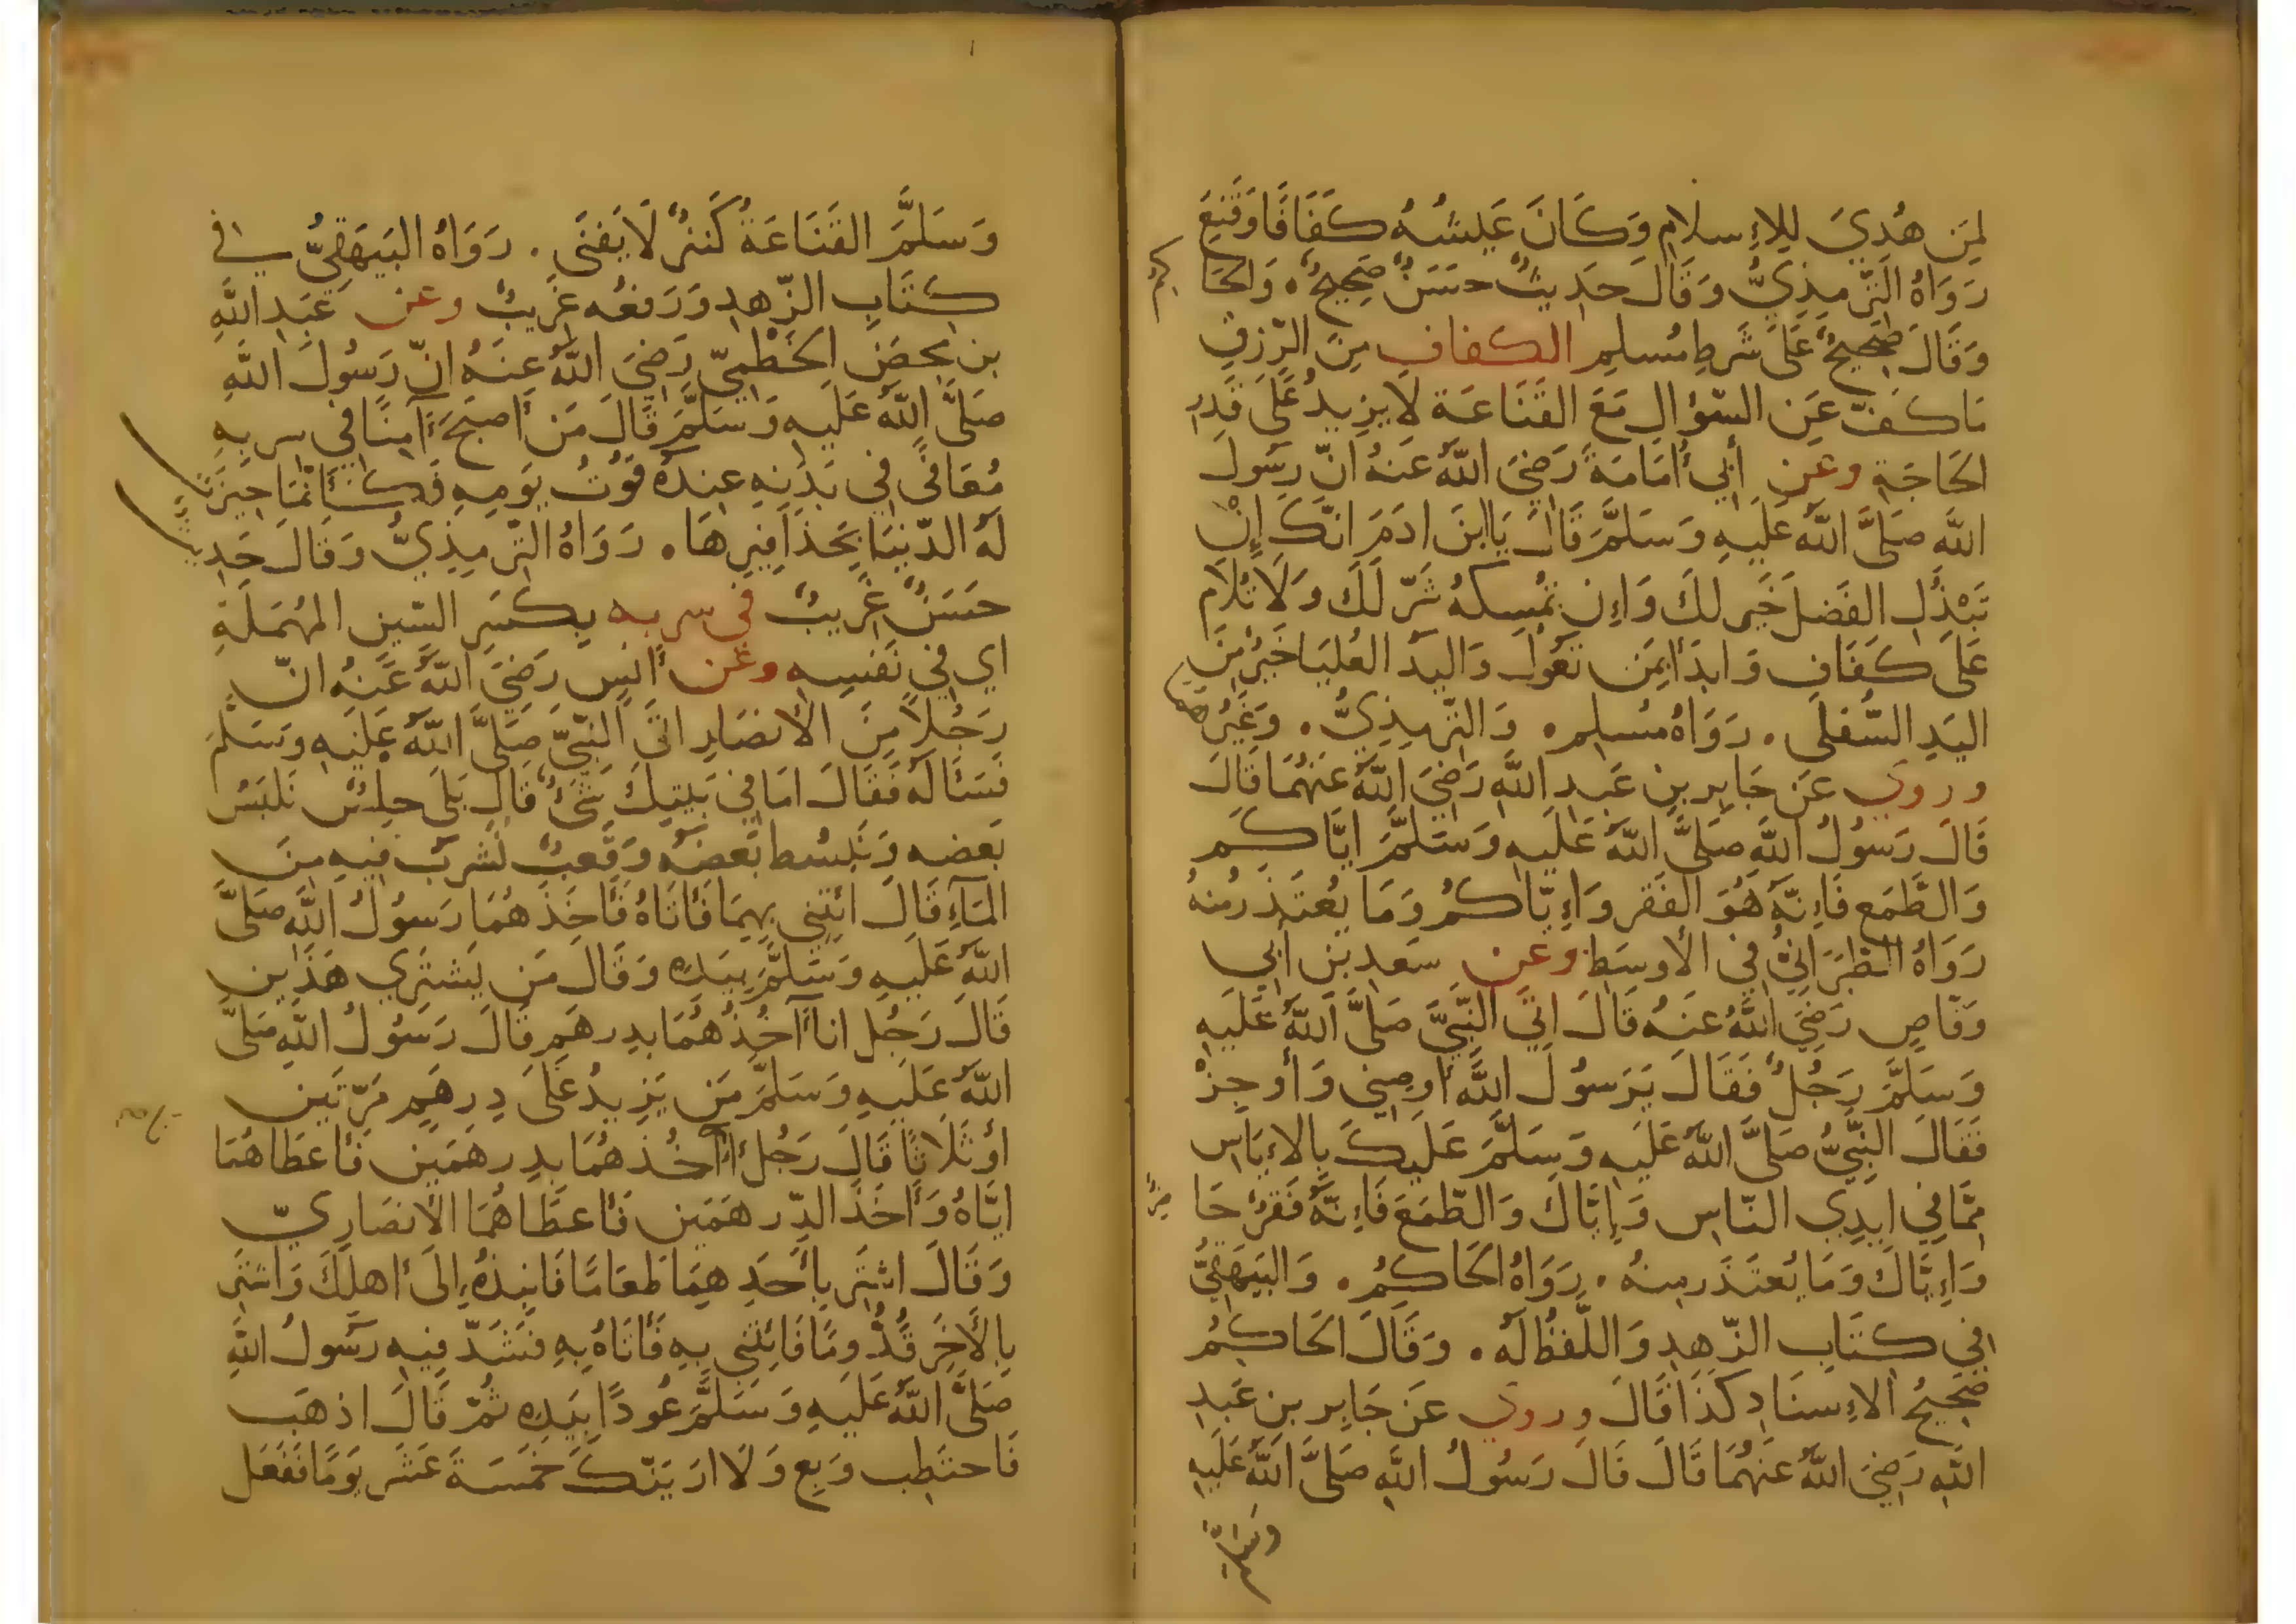 لِمَن هُدِيَ لِلإِسلَامِ وَكَانَ عَيشُهُ كَفَافًا وَقَنِعَ
رَوَاهُ التِّرمِذِيُّ وَقَالَ حَدِيثٌ حَسَنٌ صَحِيحٌ • وَالحَا
كِمُ
وَقَالَ صَحِيحٌ عَلَى شَرطِ مُسلِمٍ الكفاف مِنَ الرِّزقِ
مَا كَفَّ عَنِ السّؤالِ مَعَ القَنَاعَة لَا يزِيدُ عَلَى قَدرِ
الحَاجَةِ وعن أَبِي أُمَامَةَ رَضِيَ اللَّهُ عَنهُ انّ رَسُولَ
اللَّه صَلَّى اللَّهُ عَلَيهِ وَسَلَّمَ قَالَ يَا ابنَ ادَمَ انَّكَ إِنْ
تَبْذُلِ الفَضلَ خَيرٌ لَكَ وَإِن تُمسِكهُ شَرٌّ لَكَ وَلَا تُلَامُ
عَلَى كَفَافٍ وَابدَأ بِمَن تَعُولُ وَاليَد العُليَا خَيرٌ مِنَ
اليَدِ السُّفلَى . رَوَاهُ مُسلِم • وَالتِّرمِذِيُّ . وَغَيرُهُمَا
وروي عَن جَابِرِ بنِ عَبدِ اللَّهِ رَضِيَ اللَّهُ عَنهُمَا قَالَ
قَالَ رَسُولُ اللَّهِ صَلَّى اللَّهُ عَلَيهِ وَسَلَّمَ ايَّاكُم
وَالطَّمَع فَإِنَّهُ هُوَ الفَقر وَإِيَّاكُم وَمَا يُعتَذَر مِنهُ
رَوَاهُ الطَّبَرَانِيُّ فِي الأَوسَط وعن سَعدِ بنِ أَبِي
وَقّاصٍ رَضِيَ اللَّهُ عَنهُ قَالَ اتَى النَّبِيَّ صَلَّى اللَّهُ عَلَيهِ
وَسَلَّمَ رَجُلٌ فَقَالَ يَرَسُولَ اللَّهِ أَوصِنِي وَأَوجِزْ
فَقَالَ النَّبِيُّ صَلَّى اللَّهُ عَلَيهِ وَسَلَّمَ عَلَيكَ بِالإِيَاسِ
مِمَّا فِي ايدِي النَّاسِ وَإِيَّاكَ وَالطَّمَعَ فَإِنَّهُ فَقرٌ حَا
ضِرٌ
وَإِيَّاكَ وَمَا يُعتَذَر مِنهُ . رَوَاهُ الحَاكِمُ . وَالبَيهَقِيُّ
فِي كِتَابِ الزّهدِ وَاللَّفظُ لَهُ . وَقَالَ الحَاكِمُ
صَحِيحُ الإِسنَادِ كَذَا قَالَ وروي عَن جَابِرِ بنِ عَبدِ
اللَّهِ رَضِيَ اللَّهُ عَنهُمَا قَالَ قَالَ رَسُولُ اللَّهِ صَلَّى اللَّهُ عَلَيهِ
وَسَلَّمَ
وَسَلَّمَ القَنَاعَةُ كَنزٌ لَا يَفنَى . رَوَاهُ البَيهَقِيُّ في
كِتَابِ الزّهدِ وَرَفعُه غَرِيبٌ وعن عَبدِ اللَّهِ
بن محصن الخَطْمِيّ رَضِيَ اللَّهُ عَنهُ انّ رَسُولَ اللَّهِ
صَلَّى اللَّهُ عَلَيهِ وَسَلَّمَ قَالَ مَن أَصبَحَ آمِنًا فِي سربِهِ
مُعَافًى فِي بَدَنِهِ عِندَهُ قُوتُ يَومِهِ فَكَأَنَّمَا حِيزَت
لَهُ الدّنيَا بِحَذَافِيرِهَا . رَوَاهُ التِّرمِذِيُّ وَقَالَ حَدِيثٌ
حَسَنٌ غَرِيبٌ في سربه بِكَسرِ السّينِ المُهمَلَةِ
اي فِي نَفسِهِ وعن أَنَسٍ رَضِيَ اللَّهُ عَنهُ انّ
رَجُلاً مِنَ الأَنصَارِ اتَى النّبِيَّ صَلَّى اللَّهُ عَلَيهِ وَسَلَّمَ
فَسَأَلَهُ فَقَالَ امَا فِي بَيتِكَ شَيءٌ قَالَ بَلَى حِلسٌ نَلبَسُ
بَعضه وَنَبسُط بَعضَهُ وَقَعبٌ نَشرَبُ فِيهِ مِنَ
المَآءِ قَالَ ائتِنِي بِهِمَا فَأَتَاهُ فَأَخَذَهُمَا رَسُولُ اللَّهِ صَلَّى
اللَّهُ عَلَيهِ وَسَلَّمَ بِيَدِهِ وَقَالَ مَن يَشتَرِي هَذَينِ
قَالَ رَجُل انا آخُذُهُمَا بِدِرهَمٍ قَالَ رَسُولُ اللَّهِ صَلَّى
اللَّهُ عَلَيهِ وَسَلَّمَ مَن يَزِيدُ عَلَى دِرهَمٍ مَرّتَينِ
أَو ثَلَاثًا قَالَ رَجُل أَنَا آخُذهُمَا بِدِرهَمَينِ فَأَعطَاهُمَا
ايَّاهُ وَأَخَذَ الدِّرهَمَينِ فَأَعطَاهُمَا الأَنصَارِيّ
وَقَالَ اشتَرِ بِأَحَدِهِمَا طَعَامًا فَانبِذهُ إِلَى أَهلِكَ وَاشتَرِ
بِالآخَرِ قَدُّومًا فَائتِنِي بِهِ فَأَتَاهُ بِهِ فَشَدّ فِيهِ رَسُولُ اللَّهِ
صَلَّى اللَّهُ عَلَيهِ وَسَلَّمَ عُودًا بِيَدِهِ ثُمّ قَالَ اذهَب
فَاحتَطِب وَبِع وَلَا ارَيَنّكَ خَمسَةَ عَشَر يَومًا فَفَعَلَ